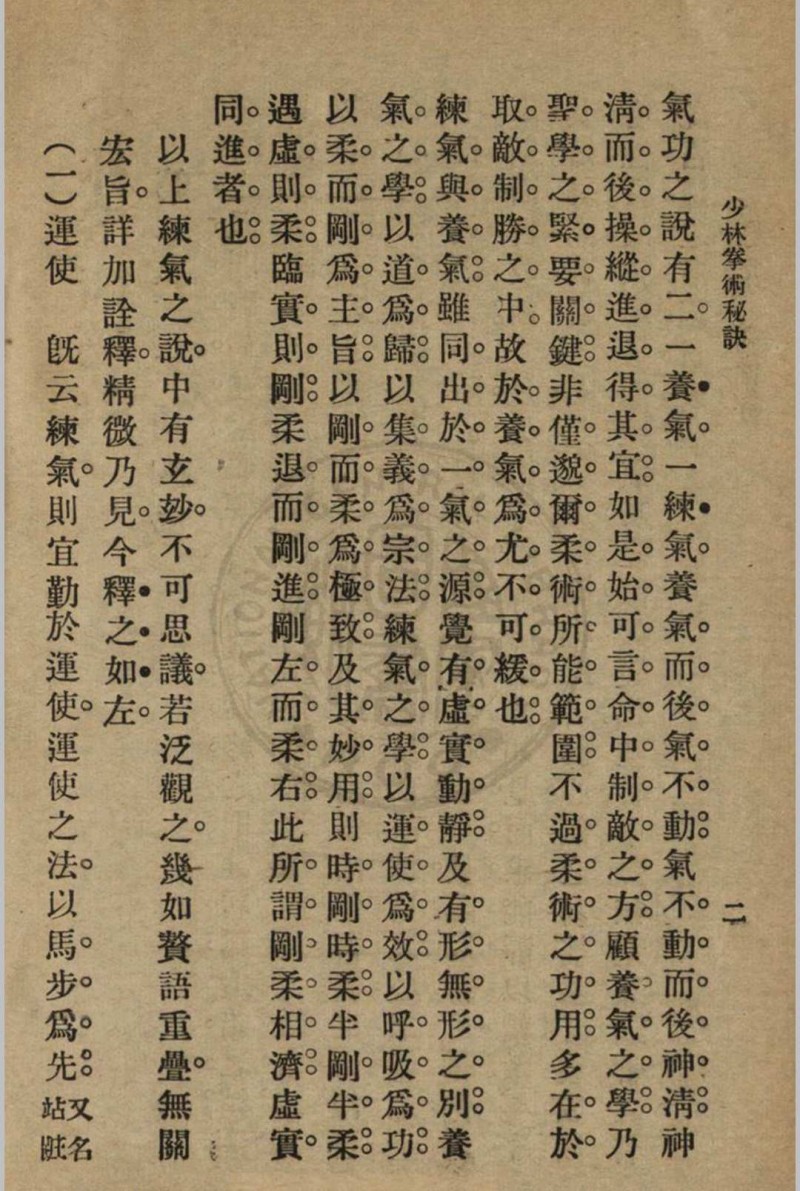 少林拳術秘訣
二
氣功之說有二。一養氣。一練氣。養氣。而。後。氣。不。動。氣不。動。而。後。神。清。神
清。而。後。操。縱。進。退。得。其。宜。如是。始。可。言。命。中。制。敵。之。方。顧養。氣。之。學。乃
聖。學。之。緊。要。關。鍵。非僅。邈。爾。柔。術。所。能。範。圍。不過。柔。術。之。功。用。多在。於。
取。敵。制。勝。之。中。故於。養。氣。爲。尤。不。可。緩。也。
練氣。與。養。氣。雖同。出。於。一。氣。之。源。覺有。虛。實。動。靜。及有。形。無。形。之。別。養
氣。之。學。以道。爲。歸。以集。義。爲。宗。法。練氣。之。學。以運。使。爲。效。以呼。吸。爲。功。
以柔。而。剛。爲。主。旨。以剛。而。柔。爲。極。致。及其。妙。用。則時。剛。時。柔。半剛。半。柔。
遇虛。則。柔。臨實。則。剛。柔退。而。剛。進。剛左。而。柔。右。此所。謂。剛。柔。相。濟。虛實。
同。進。者。也。
以上練氣之說。中有玄玅。不可思議。若泛觀之。幾如贅語重疊。無關
宏旨。詳加詮釋。精微乃見。今釋之如左。
（一）運使　旣云練氣。則宜勤於運使。運使之法。以馬。步。爲。先。又名站